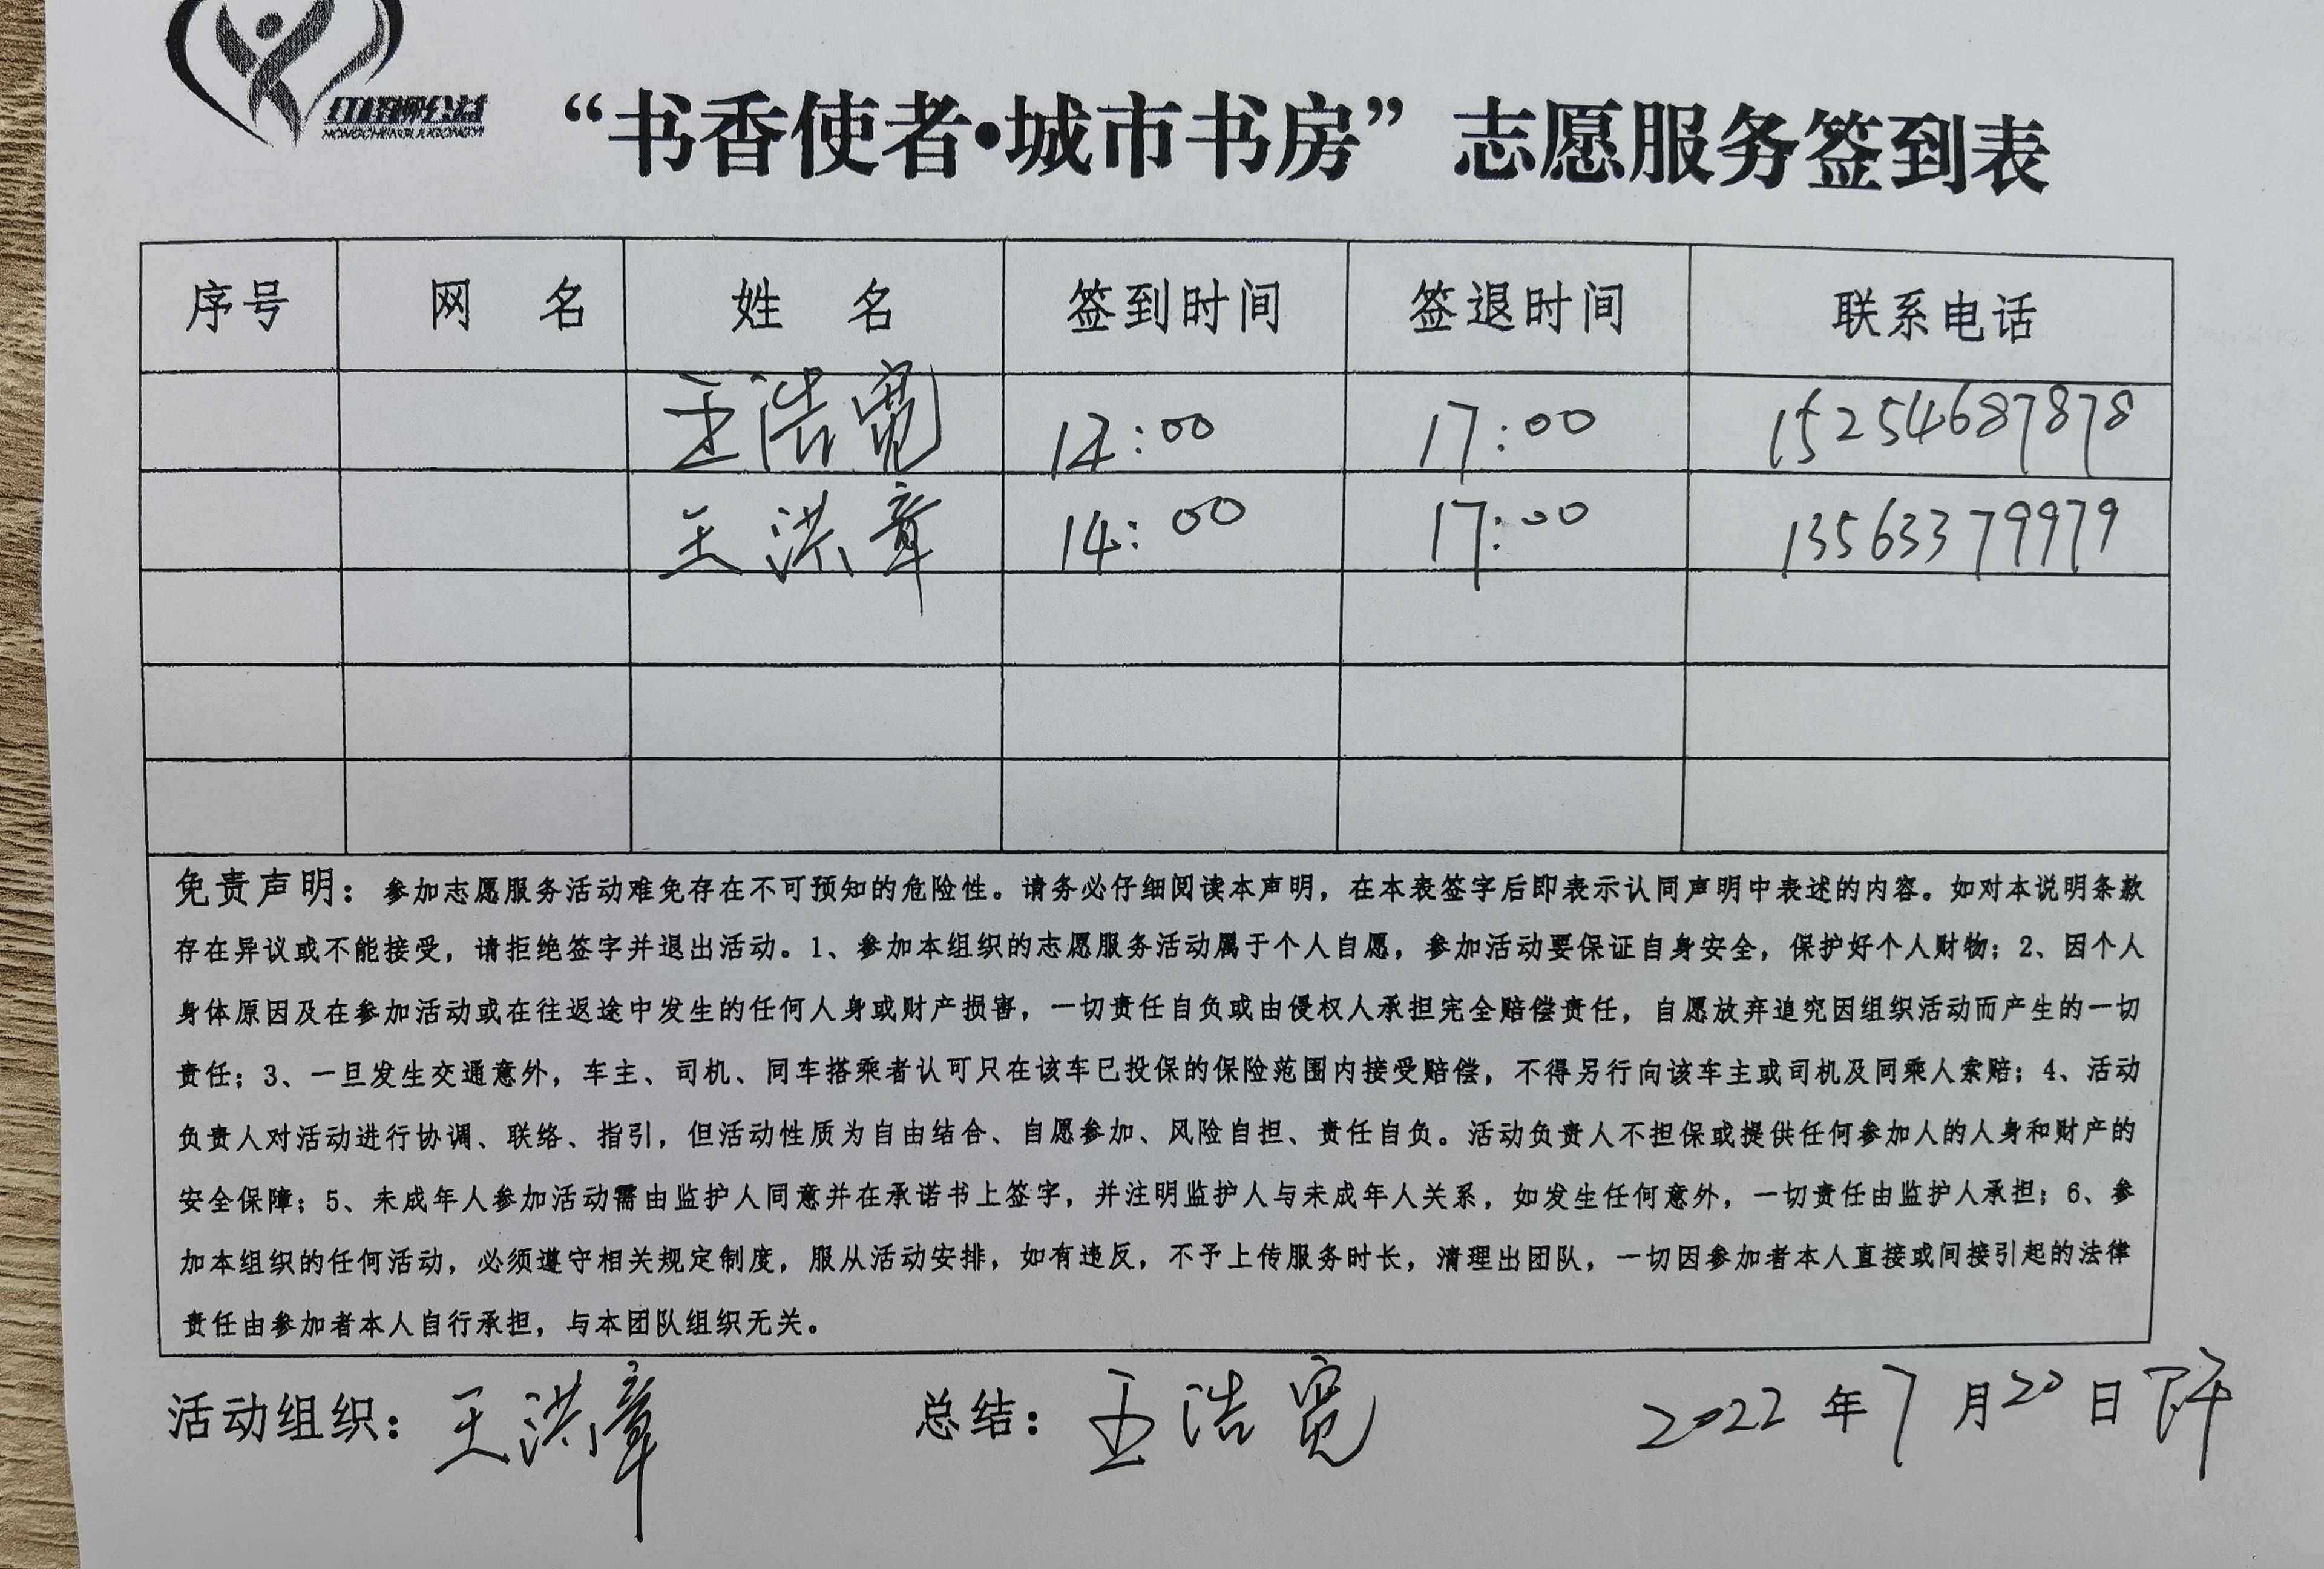 红柽柳公益
HONGCHENGLIUGONGYI
“书香使者•城市书房”志愿服务签到表
序号 网 名 姓 名 签到时间 签退时间 联系电话
王浩宽 14:00 17:00 15254687878
王洪章 14:00 17:00 13563379979
免责声明：参加志愿服务活动难免存在不可预知的危险性。请务必仔细阅读本声明，在本表签字后即表示认同声明中表述的内容。如对本说明条款
存在异议或不能接受，请拒绝签字并退出活动。1、参加本组织的志愿服务活动属于个人自愿，参加活动要保证自身安全，保护好个人财物；2、因个人
身体原因及在参加活动或在往返途中发生的任何人身或财产损害，一切责任自负或由侵权人承担完全赔偿责任，自愿放弃追究因组织活动而产生的一切
责任；3、一旦发生交通意外，车主、司机、同车搭乘者认可只在该车已投保的保险范围内接受赔偿，不得另行向该车主或司机及同乘人索赔；4、活动
负责人对活动进行协调、联络、指引，但活动性质为自由结合、自愿参加、风险自担、责任自负。活动负责人不担保或提供任何参加人的人身和财产的
安全保障；5、未成年人参加活动需由监护人同意并在承诺书上签字，并注明监护人与未成年人关系，如发生任何意外，一切责任由监护人承担；6、参
加本组织的任何活动，必须遵守相关规定制度，服从活动安排，如有违反，不予上传服务时长，清理出团队，一切因参加者本人直接或间接引起的法律
责任由参加者本人自行承担，与本团队组织无关。
活动组织：王洪章 总结：王浩宽 2022年7月20日下午